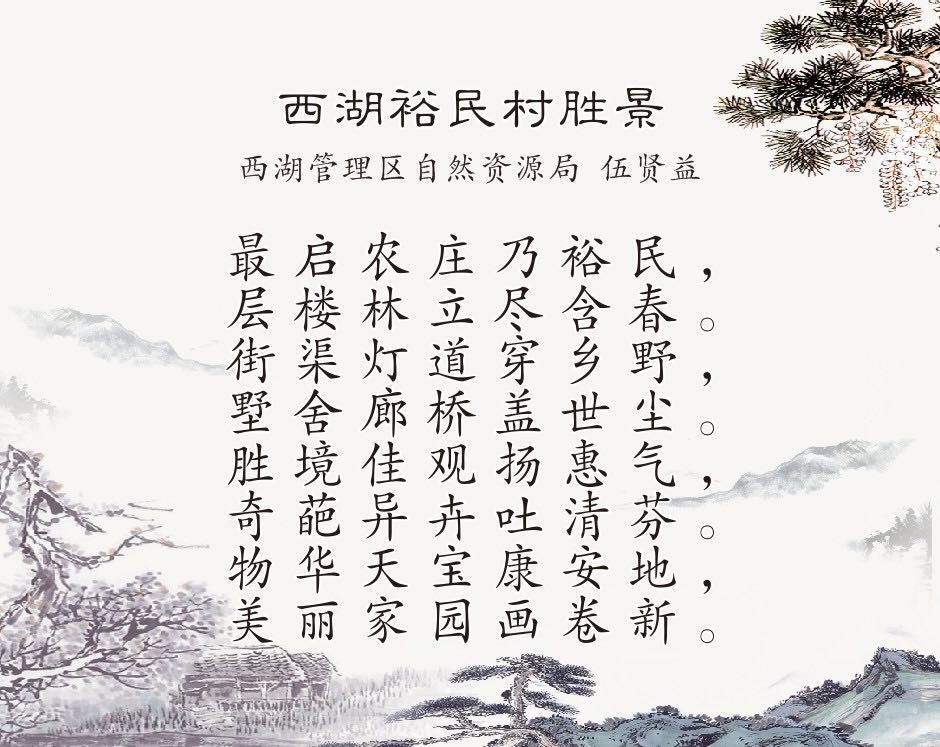 西湖裕民村胜景
西湖管理区自然资源局 伍贤益
最启农庄乃裕民，
层楼林立尽含春。
街渠灯道穿乡野，
墅舍廊桥盖世尘。
胜境佳观扬惠气，
奇葩异卉吐清芬。
物华天宝康安地，
美丽家园画卷新。